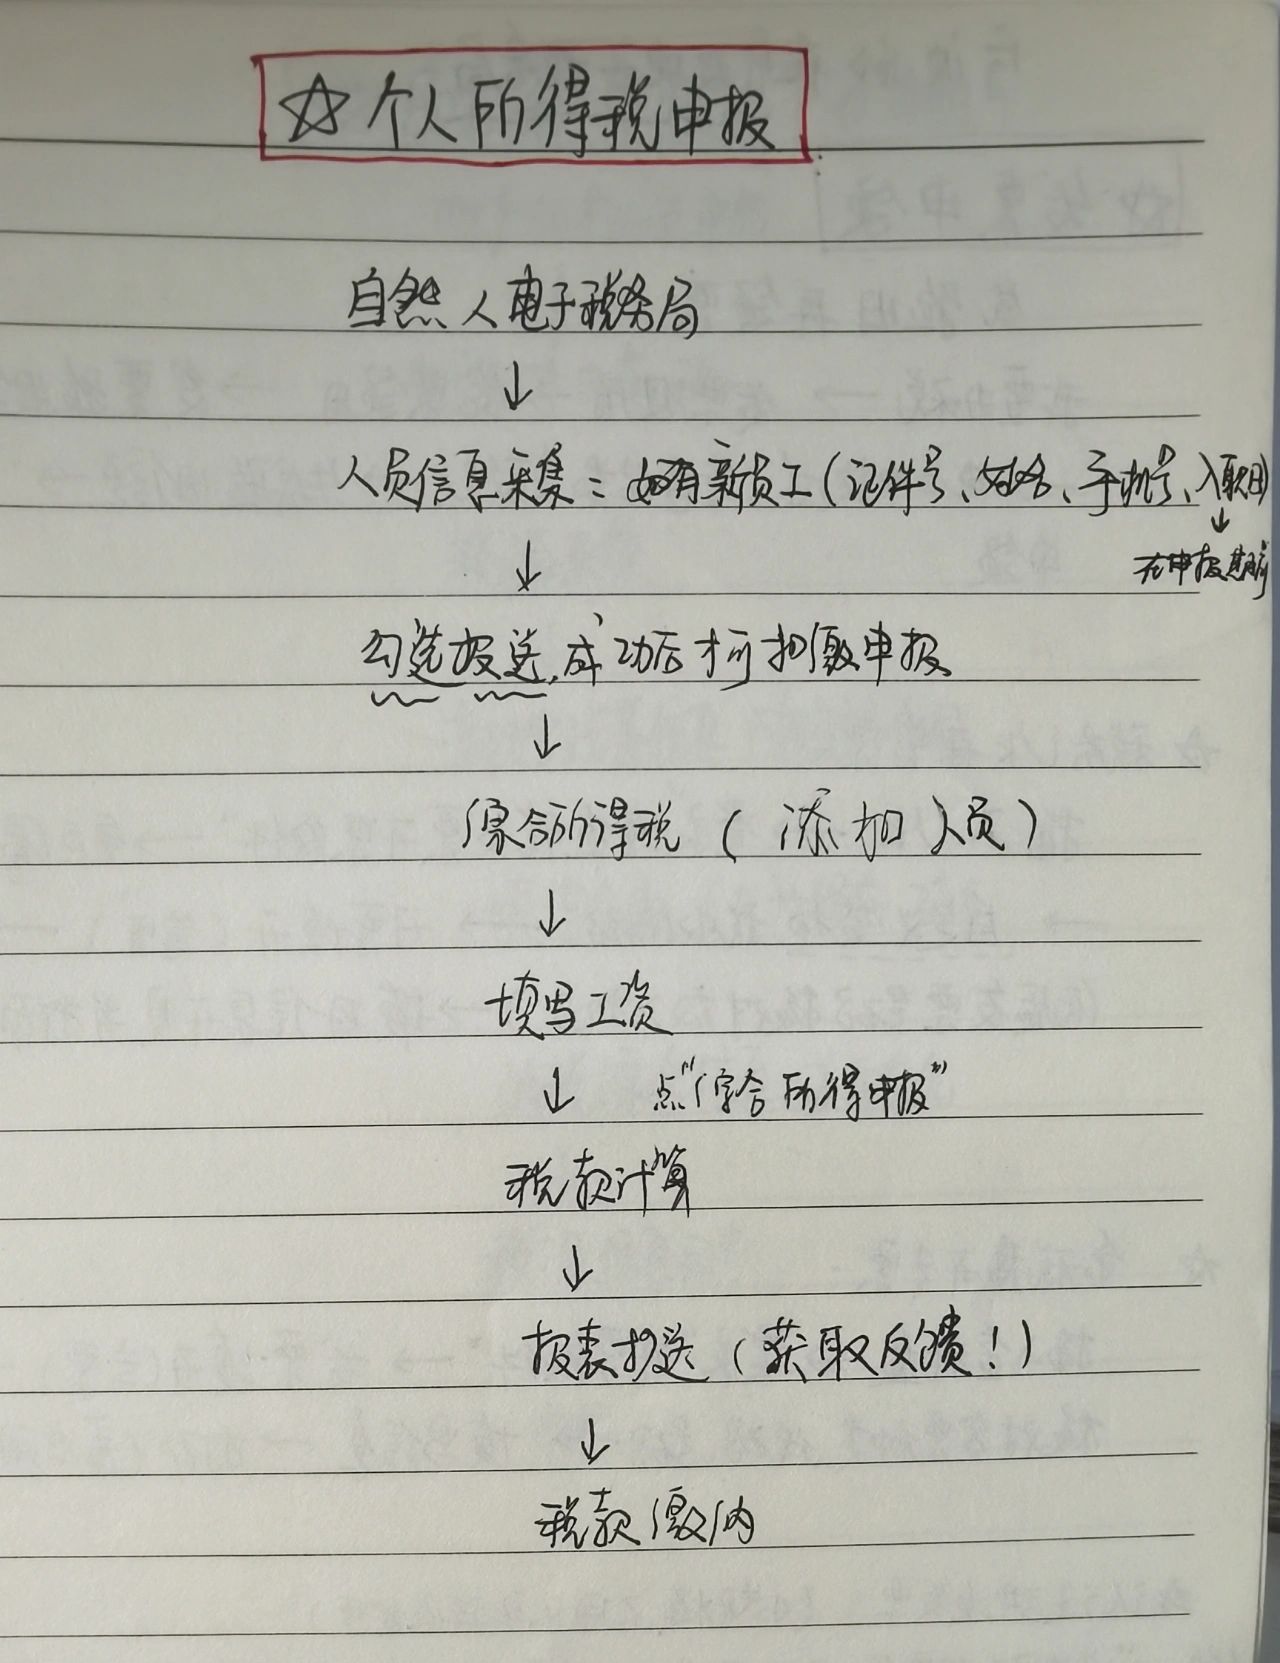 ☆个人所得税申报
自然人电子税务局
↓
人员信息采集：如有新员工（证件号、姓名、手机号、入职日）
↓
在申报期前
↓
勾选报送，成功后才可扣缴申报
↓
综合所得税（添加人员）
↓
填写工资
↓ 点"综合所得申报"
税款计算
↓
报表报送（获取反馈！）
↓
税款缴纳